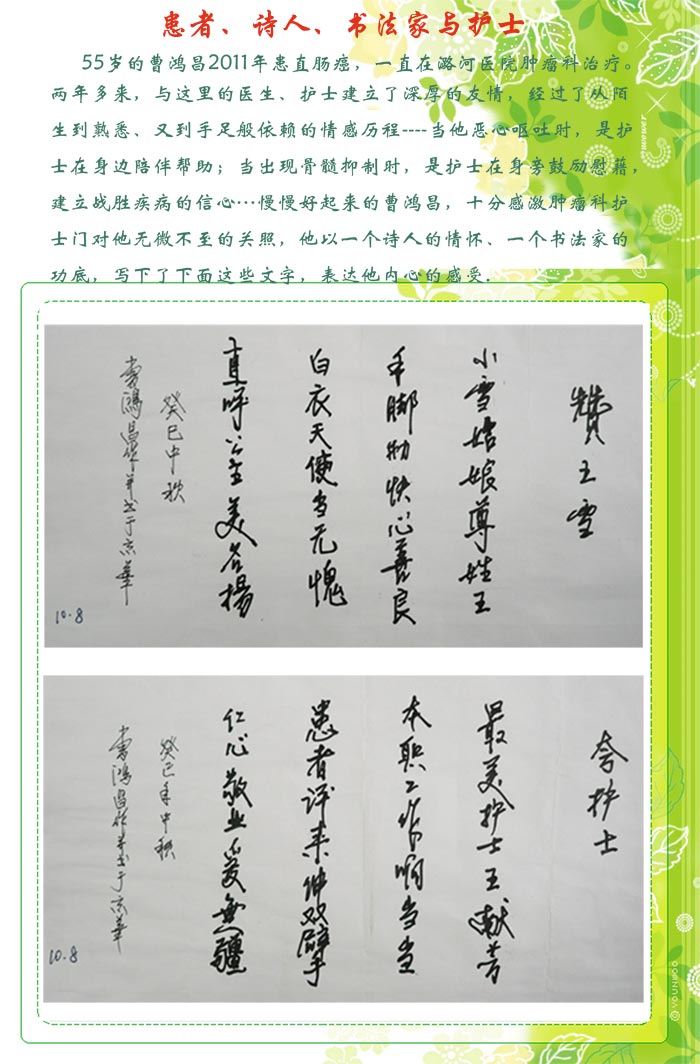 患者、诗人、书法家与护士
55岁的曹鸿昌2011年患直肠癌，一直在潞河医院肿瘤科治疗。
两年多来，与这里的医生、护士建立了深厚的友情，经过了从陌
生到熟悉、又到手足般依赖的情感历程----当他恶心呕吐时，是护
士在身边陪伴帮助；当出现骨髓抑制时，是护士在身旁鼓励慰藉，
建立战胜疾病的信心…慢慢好起来的曹鸿昌，十分感激肿瘤科护
士门对他无微不至的关照，他以一个诗人的情怀、一个书法家的
功底，写下了下面这些文字，表达他内心的感受.
赞王雪
小雪姑娘尊姓王
手脚勤快心善良
白衣天使当无愧
直呼公主美名扬
癸巳中秋
曹鸿昌作并书于京華
10.8
夸护士
最美护士王献芳
本职工作响当当
患者评来伸双擘
仁心敬业爱無疆
癸巳年中秋
曹鸿昌作并书于京華
10.8